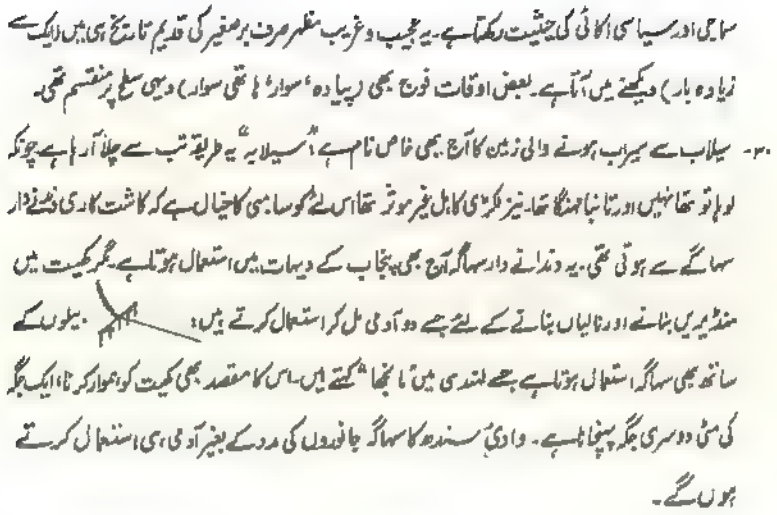 سماجی اور سیاسی اکائی کی حیثیت رکھتا ہے۔ یہ عجیب و غریب مظہر صرف برصغیر کی قدیم تاریخ ہی میں (ایک سے
زیادہ بار) دیکھنے میں آتا ہے۔ بعض اوقات فوج بھی (پیادہ، سوار، ہاتھی سوار) دیہی سطح پر منقسم تھی۔
۳۰۔ سیلاب سے سیراب ہونے والی زمین کا آج بھی خاص نام ہے "سیلابہ" یہ طریقہ تب سے چلا آ رہا ہے چونکہ
لوہا تو تھا نہیں اور تانبا مہنگا تھا۔ نیز لکڑی کا ہل غیر موثر تھا اس لئے کوسامبی کا خیال ہے کہ کاشت کاری دندانے دار
سہاگے سے ہوتی تھی۔ یہ دندانے دار سہاگہ آج بھی پنجاب کے دیہات میں استعمال ہوتا ہے۔ مگر کھیت میں
منڈیریں بنانے اور نالیاں بنانے کے لئے جسے دو آدمی مل کر استعمال کرتے ہیں: بیلوں کے
ساتھ بھی سہاگہ استعمال ہوتا ہے جسے لہندی میں "مانجھا" کہتے ہیں۔ اس کا مقصد بھی کھیت کو ہموار کرنا، ایک جگہ
کی مٹی دوسری جگہ پہنچانا ہے۔ وادیٔ سندھ کا سہاگہ جانوروں کی مدد کے بغیر آدمی ہی استعمال کرتے
ہوں گے۔